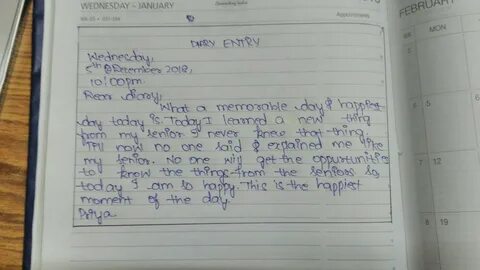 WEDNESDAY - JANUARY
Appointments
FEBRUARY
DIARY ENTRY
Wednesday,
5th December 2018,
10:00pm.
Dear diary,
What a memorable day & happiest
day today is. Today I learned a new thing
from my senior I never knew that thing.
Till now no one said & explained me like
my senior. No one will get the oppurtunities
to know the things from the seniors so
today I am so happy. This is the happiest
moment of the day
Priya
M
T
5
6
12